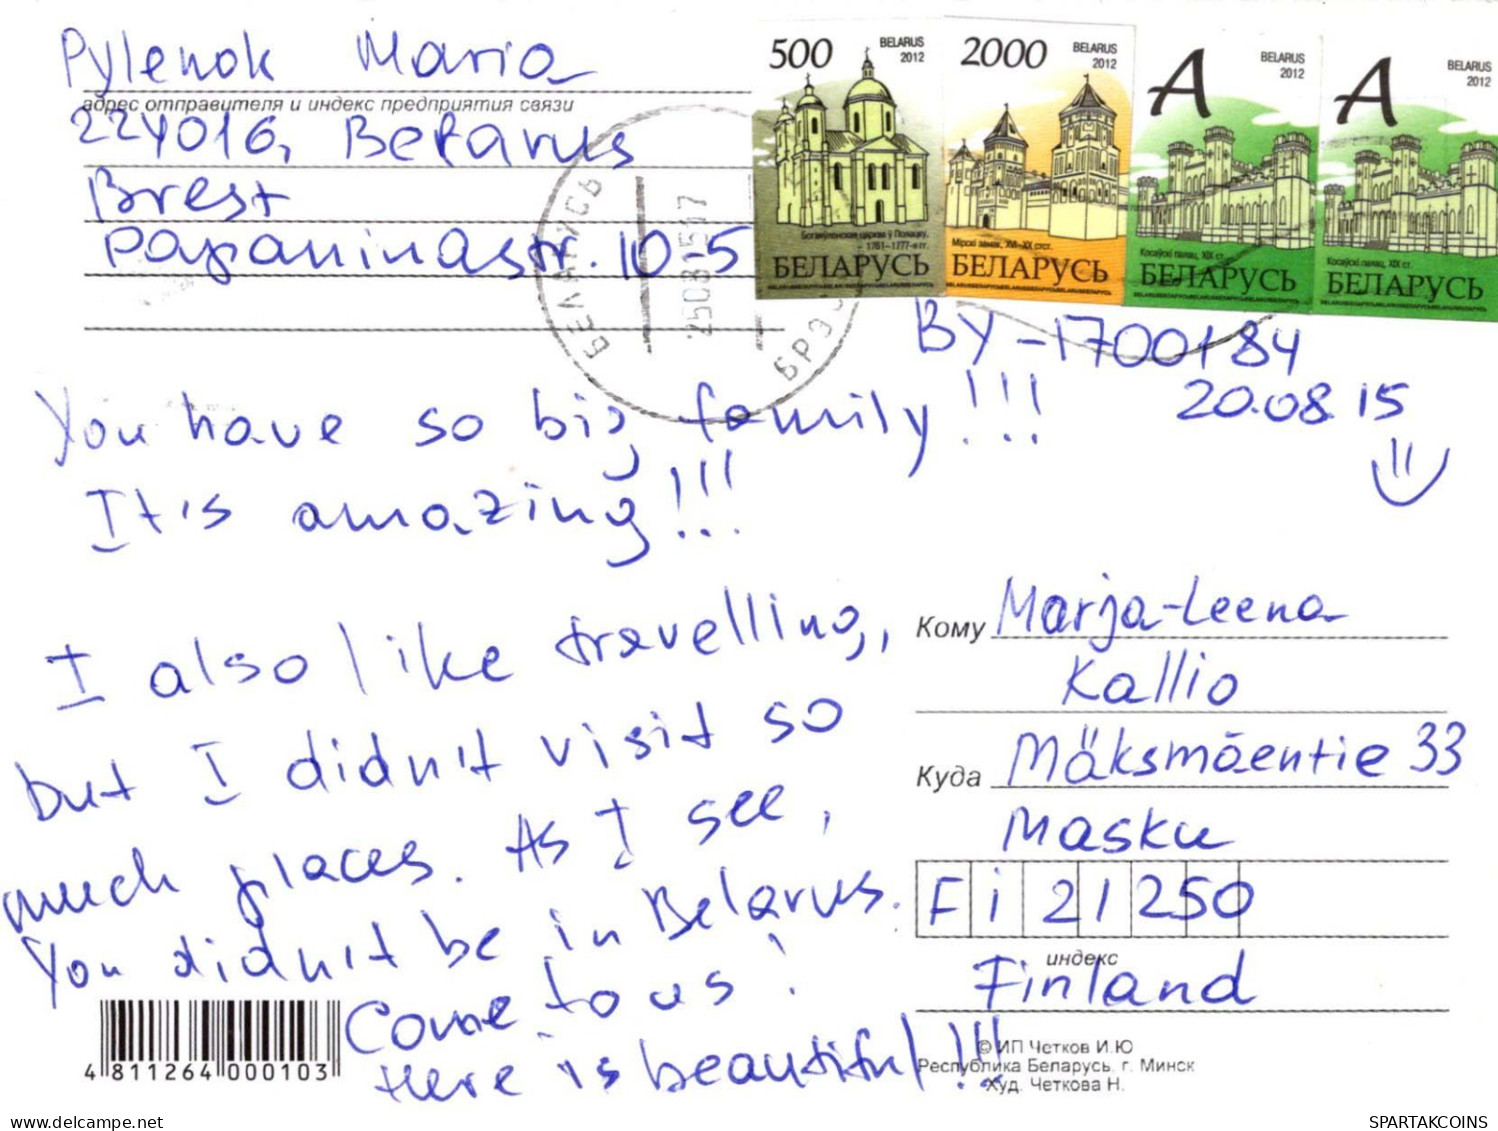 Pylenok Maria
адрес отправителя и индекс предприятия связи
224016, Belarus
Brest
Papanina str. 10-5
500 BELARUS 2012
Богаяўленская царква ў Полацку,
1761-1777-я гг.
БЕЛАРУСЬ
2000 BELARUS 2012
Мірскі замак, XVI-XX стст.
БЕЛАРУСЬ
A BELARUS 2012
Косаўскі палац, XIX ст.
БЕЛАРУСЬ
A BELARUS 2012
Косаўскі палац, XIX ст.
БЕЛАРУСЬ
БЕЛАРУСЬ
250815 17
БРЭС
BY-1700184
20.08.15
You have so big family!!!
It is amazing!!!
I also like travelling,
but I didn't visit so
much places. As I see,
You didn't be in Belarus.
Come to us!
Here is beautiful!!!
Кому Marja-Leena
Kallio
Куда Mäksmäentie 33
Masku
Fi 21250
индекс
Finland
4 811264 000103
© ИП Четков И.Ю
Республика Беларусь, г. Минск
Худ. Четкова Н.
delcampe.net
SPARTAKCOINS